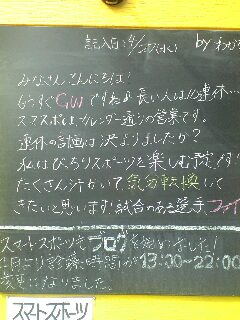 記入日:4/ (水) by わか
みなさんこんにちは!
もうすぐGWですね♪長い人は10連休…
スマスポは、カレンダー通りの営業です。
連休の計画は決まりましたか?
私はびっちりスポーツを楽しむ予定
たくさん汗かいて気分転換して
きたいと思います!試合のある選手ファイ
スマートスポーツもブログを始めました!
月より診療時間が13:00~22:00
変更になりました。
スマートスポーツ